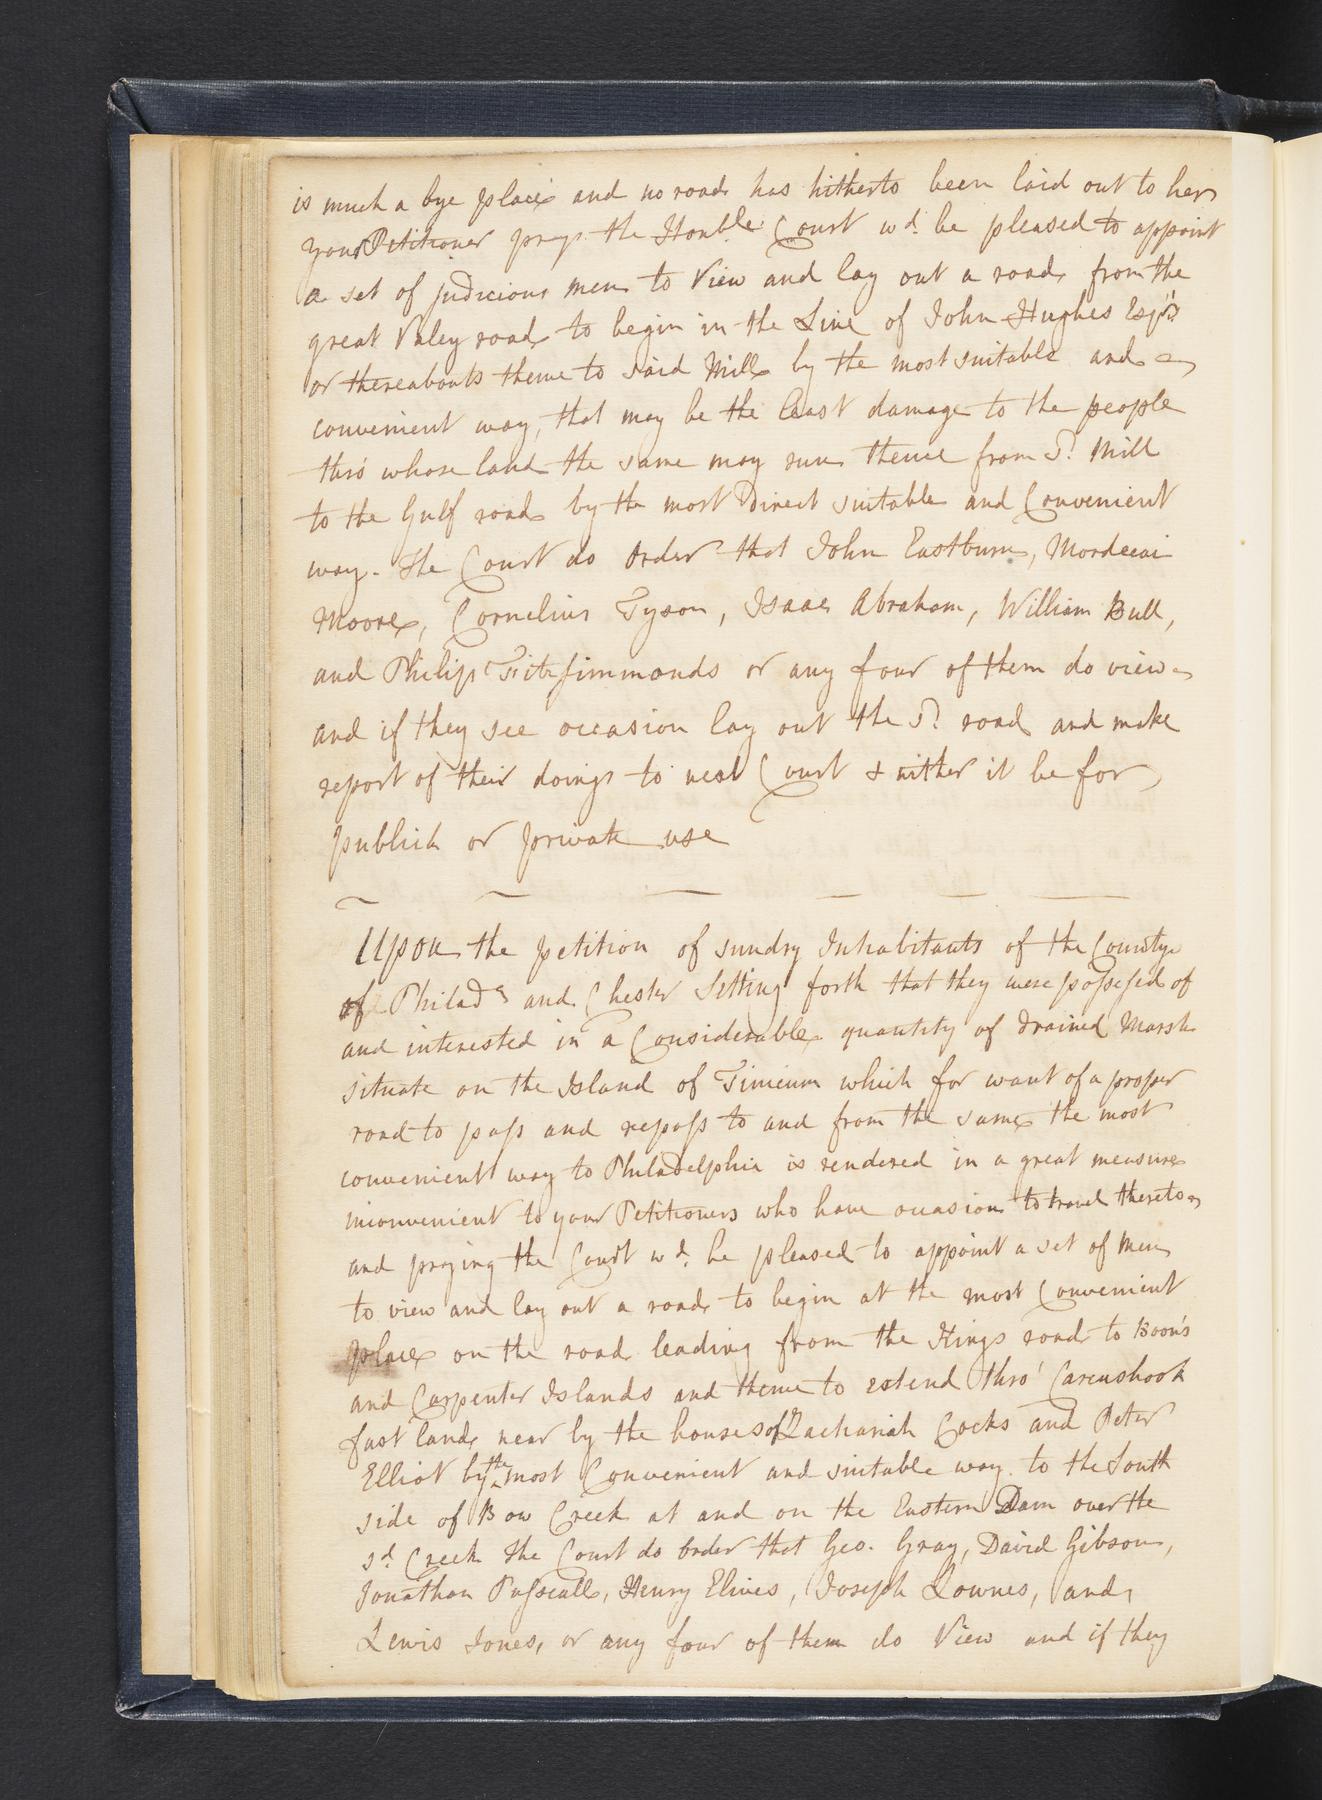 is much a bye place and no road has hitherto been laid out to her
your Petitioner prays the Honble. Court wd. be pleased to appoint
a set of judicious men to View and lay out a road from the
great Valey road to begin in the Line of John Hughes Esqrs
or thereabouts thence to said Mill by the most suitable and
convenient way, that may be the least damage to the people
thro' whose land the same may run thence from sd. Mill
to the Gulf road by the most Direct suitable and Convenient
way. The Court do order that John Eastburn, Mordecai
Moore, Cornelius Tyson, Isaac Abraham, William Bull,
and Philip Fitzsimmonds or any four of them do view
and if they see occasion lay out the sd. road and make
report of their doings to next Court & wither it be for
publick or private use
Upon the petition of sundry Inhabitants of the County
of Philada and Chester Setting forth that they were possessed of
and interested in a Considerable quantity of drained Marsh
situate on the Island of Tinicum which for want of a proper
road to pass and repass to and from the same the most
convenient way to Philadelphia is rendered in a great measure
inconvenient to your Petitioners who have occasion to travel thereto
and praying the Court wd. be pleased to appoint a set of men
to view and lay out a road to begin at the most Convenient
place on the road leading from the Kings road to Boon's
and Carpenter Islands and thence to extend thro' Carenshook
fast land near by the houses of Zachariah Cocks and Peter
Elliot by the most Convenient and suitable way to the South
side of Bow Creek at and on the Eastern Dam over the
sd Creek The Court do order that Geo. Gray, David Gibson,
Jonathan Passcall, Henry Elives, Joseph Lownes, and
Lewis Jones, or any four of them do View and if they